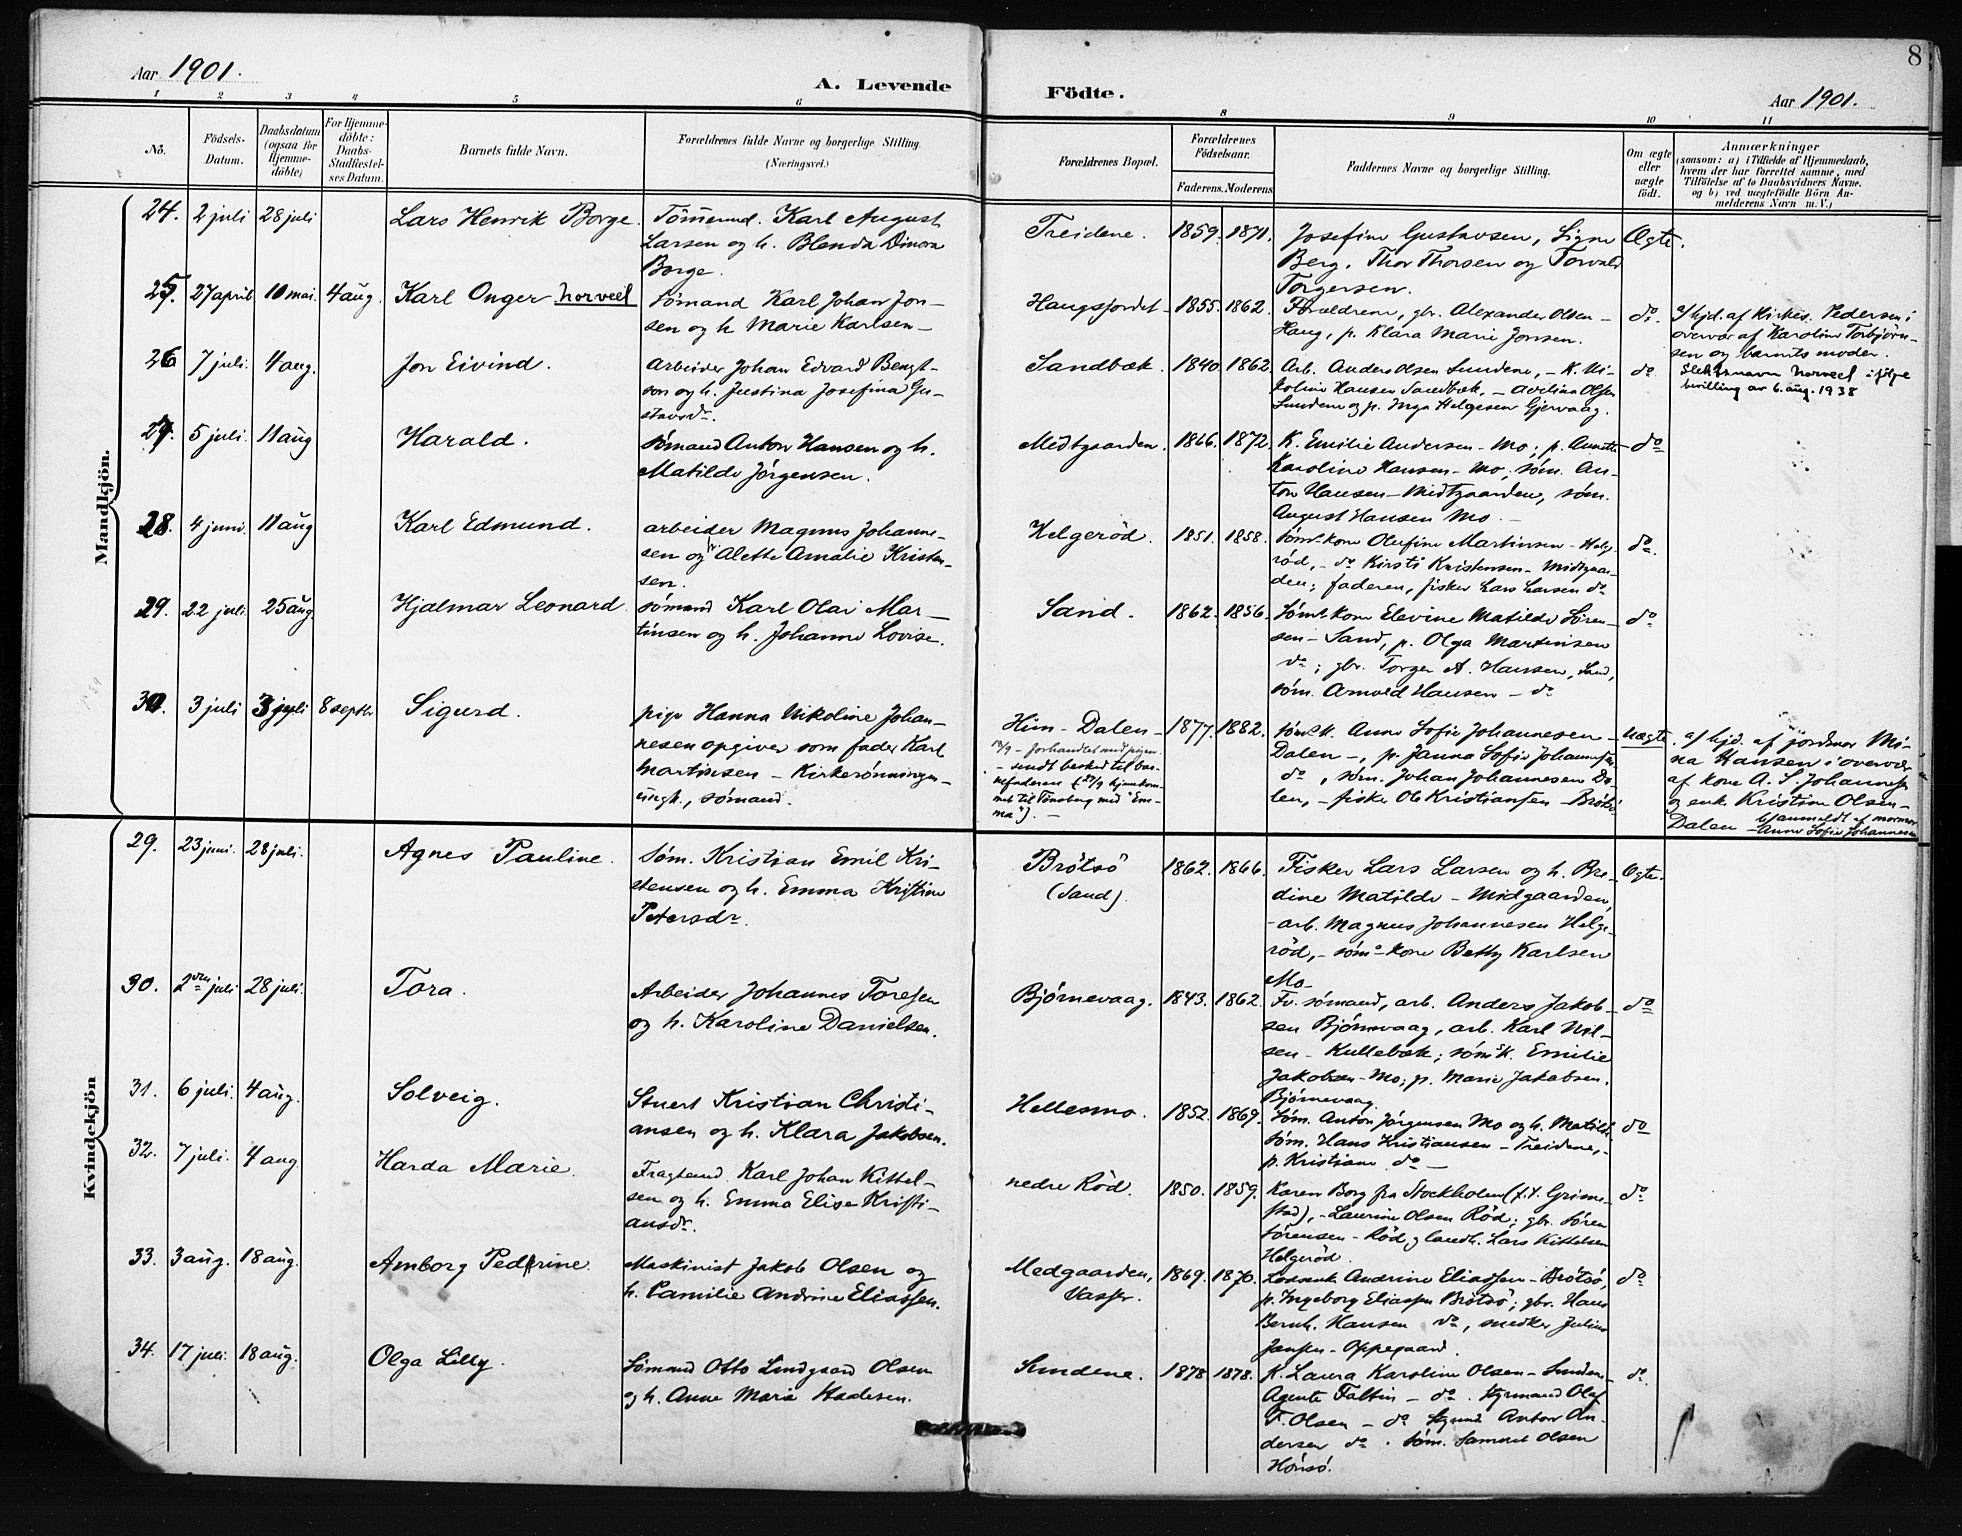 Aar 1901.
A. Levende
Födte.
Aar 1901.
8
1 2 3 4 5 6 8 9 10 11
No.
Födsels-
Datum.
Daabsdatum
(ogsaa for
Hjemme-
döbte)
For Hjemme-
döbte:
Daabs-
Stadfæstel-
ses Datum.
Barnets fulde Navn.
Forældrenes fulde Navne og borgerlige Stilling.
(Næringsvei.)
Forældrenes Bopæl.
Forældrenes
Födselsaar.
Faderens. Moderens
Faddernes Navne og borgerlige Stilling.
Om ægte
eller
uægte
födt.
Anmærkninger
(saasom: a) i Tilfælde af Hjemmedaab,
hvem der har forrettet samme, med
Tilföielse af to Daabsvidners Navne.
og b) ved uægtefödte Börn An-
melderens Navn m. V.)
Mandkjön.
24. 2 juli 28 juli
Lars Henrik Borge.
Tømmermd. Karl August
Larsen og h. Blenda Dinora
Borge.
Treidene. 1859. 1871.
Josefine Gustavsen, Signe
Berg, Thor Thorsen og Torvald
Torgersen.
Ægte.
25. 27 april 10 mai. 4 aug.
Karl Onger Norveel
Sømand Karl Johan Jon-
sen og h. Marie Karlsen-
Haugsjordet- 1855. 1862.
Forældrene, gbr. Alexander Olsen-
Haug, p. Klara Marie Jonsen.
do.
/hjd. af Kirkes. Pedersen i
overvær af Karoline Torbjørn-
sen og barnets moder.
Slektsnavn Norveel ifølge
bevilling av 6. aug. 1938
26 7 juli. 4 aug.
Jon Eivind.
Arbeider Johan Edvard Bengt-
son og h. Justina Josefina Gu-
stavsdr.
Sandbæk. 1840 1862.
Arb. Anders Olsen Sundene, - K. Ni-
koline Hansen Sandbæk, - Avelina Olsen
Sundene og p. Inga Helgesen Gjervaag.
do
27. 5 juli. 11 aug
Harald.
Sømand Anton Hansen og h.
Matilde Jørgensen.
Medtgaarden. 1866. 1872.
K. Emilie Andersen - Mo; p. Annette
Karoline Hansen - Mo, søm. An-
ton Hansen - Midtgaarden, søm.
August Hansen Mo. -
do
28. 4 juni. 11 aug
Karl Edmund.
arbeider Magnus Johanne-
sen og h. Alette Amalie Kristen-
sen.
Helgeröd. 1851. 1858.
Sømk.kone Olufine Martinsen - Helge-
röd, - do Kirsti Kristensen - Midtgaa-
den; faderen, fisker Lars Larsen do
do.
29. 22 juli. 25 aug.
Hjalmar Leonard.
Sømand Karl Olai Mar-
tinsen og h. Johanne Lovise.
Sand. 1862. 1856.
Sømk.kone Elevine Matilde Søren-
sen - Sand, p. Olga Martinsen
do; gbr. Torger A. Hansen, Sand,
søm. Arnold Hansen - do
do
30. 3 juli 3 juli 8 septbr
Sigurd.
pige Hanna Nikoline Johan-
nesen opgiver som fader Karl
Martinsen - Kirkerønningen-
ungk., sømand.
Him - Dalen -
- forhandlet med pigen.
- sendt besked til bar-
nefaderen (27/9 hjemkom-
met til Tønsberg med "Em-
ma"). -
1877. 1882.
Søms K. Anne Sofie Johannesen -
Dalen -, p. Janna Sofie Johannesen
do, søm. Johan Johannesen Da-
len, - fisker Ole Kristiansen - Brötsö
Uægte.
af hjd. af jordmor Mi-
na Hansen i overvær
af kone A. S. Johannesen
og enke Kristine Olsen -
Dalen - hjanmeldt af mormor
Anne Sofie Johannesen
Kvindekjön
29. 23 juni. 28 juli.
Agnes Pauline.
Søm. Kristian Emil Kri-
stensen og h. Emma Kristine
Petersdr.
Brötsö
(Sand).
1862. 1866.
Fisker Lars Larsen og h. Bre-
dine Matilde - Midgaarden,
- arb. Magnus Johannesen Helge-
röd, - søms kone Betty Karlsen
Mo.
Ægte.
30. 2den juli 28 juli.
Tora.
Arbeider Johannes Toresen
og h. Karoline Danielsen.
Bjørnevaag. 1843. 1862.
Fv. sømand, arb. Anders Jakob-
sen Bjørnevaag, arb. Karl Niel-
sen - Kullebæk; søms k. Emilie
Jakobsen - Mo; p. Marie Jakobsen.
Bjørnevaag
do
31. 6 juli. 4 aug.
Solveig.
Stuert Kristian Christi-
ansen og h. Klara Jakobsen.
Hellesmo. 1852. 1869.
Søm. Anton Jørgensen Mo og h. Matilde
søm. Hans Kristiansen - Treidene, -
p. Kristiane do -
do
32. 7 juli. 4 aug.
Harda Marie.
Fragtemd Karl Johan Kittel-
sen og h. Emma Elise Kristi-
ansdr.
nedre Röd. 1850. 1859.
Karen Borg fra Stockholm (f.t. Grime-
stad), - Laurine Olsen Röd; gbr. Søren
Sørensen - Röd, landh. Lars Kittelsen
Helgeröd.
do
33. 3 aug. 18 aug.
Amborg Pedrine
Maskinist Jakob Olsen og
h. Pamilie Andrine Eliassen.
Medgaarden,
Vasser.
1869. 1870.
Andrine Eliassen - Brötsö,
p. Ingeborg Eliassen Brötsö; gbr. Hans
Bernh. Hansen do, snedker Julius
Jansen - Oppegaard.
do
34. 17 juli. 18 aug.
Olga Lilly.
Sømand Otto Lindgaard Olsen
og h. Anne Marie Hadesen.
Sundene. 1878 1878.
K. Laura Karoline Olsen - Sunden-
Agente Faltin - do. Styrmand Olaf
F. Olsen - do Anton An-
dersen do. søm. Samuel Olsen
Hönsö.
do.